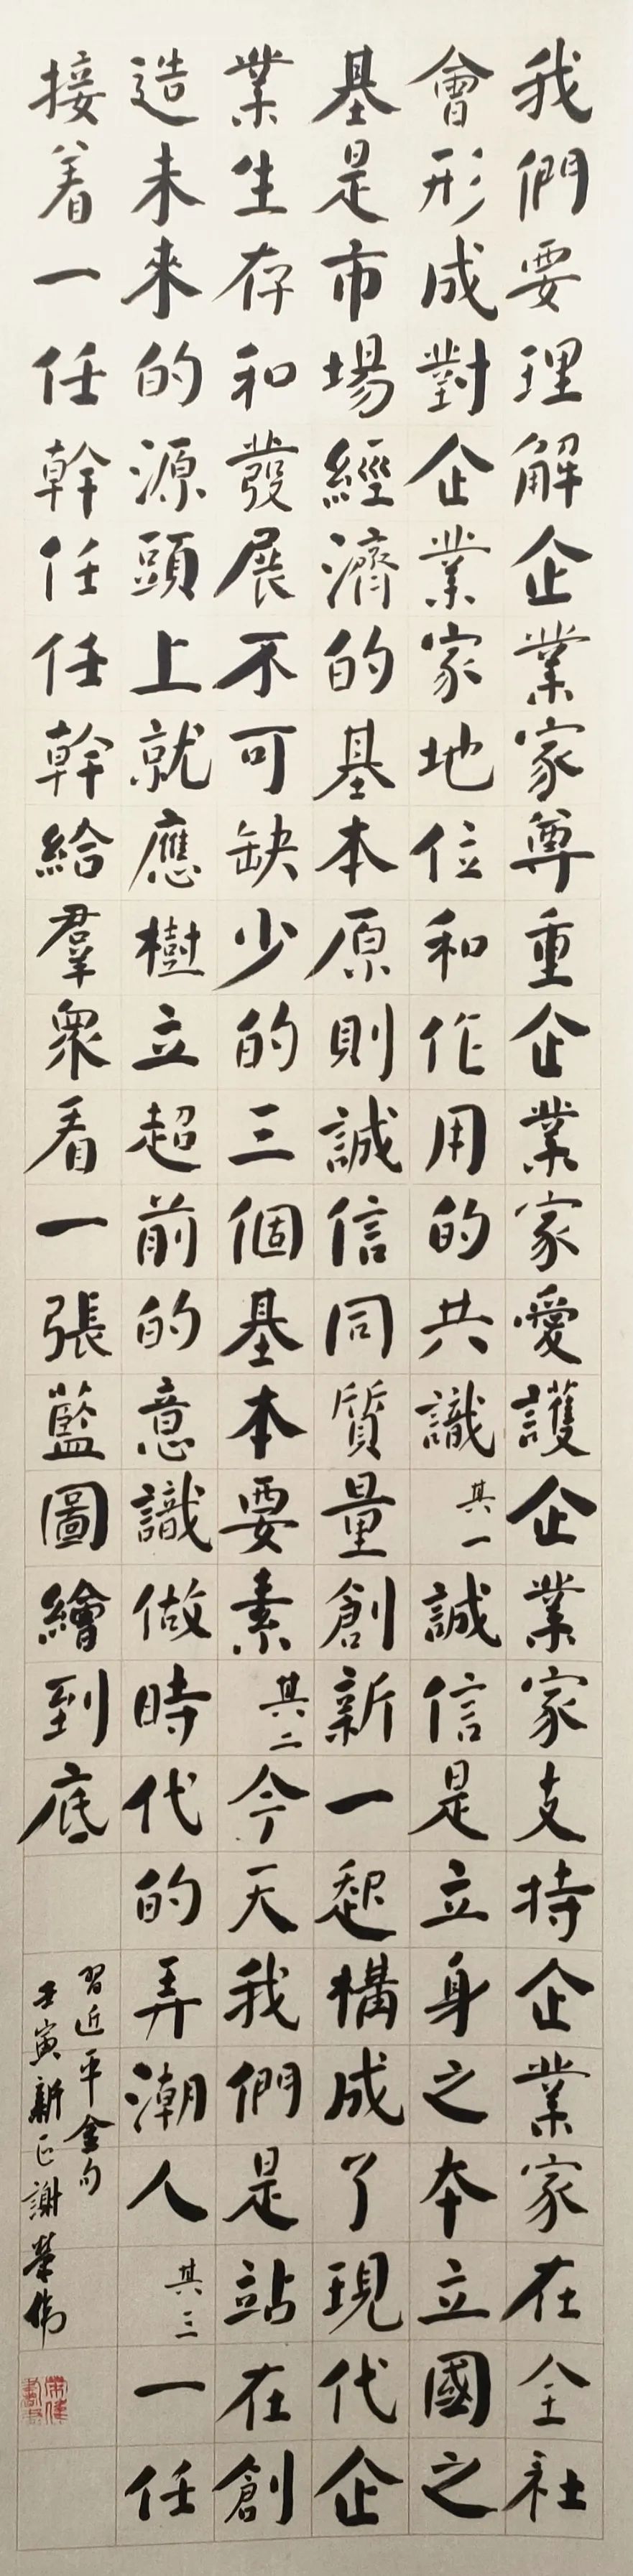 我們要理解企業家尊重企業家愛護企業家支持企業家在全社
會形成對企業家地位和作用的共識其一誠信是立身之本立國之
基是市場經濟的基本原則誠信同質量創新一起構成了現代企
業生存和發展不可缺少的三個基本要素其二今天我們是站在創
造未來的源頭上就應樹立超前的意識做時代的弄潮人其三一任
接着一任幹任任幹給羣衆看一張藍圖繪到底
習近平金句
壬寅新正謝榮偉